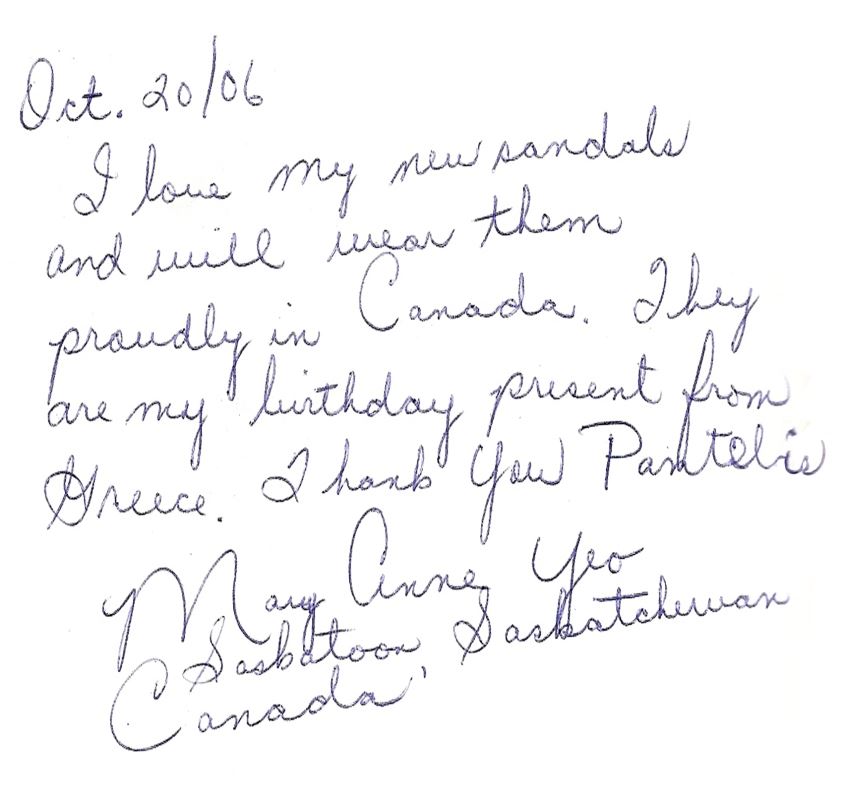 Oct. 20/06
I love my new sandals
and will wear them
proudly in Canada. They
are my birthday present from
Greece. Thank You Pantelis
Mary Anne Yeo
Saskatoon, Saskatchewan
Canada